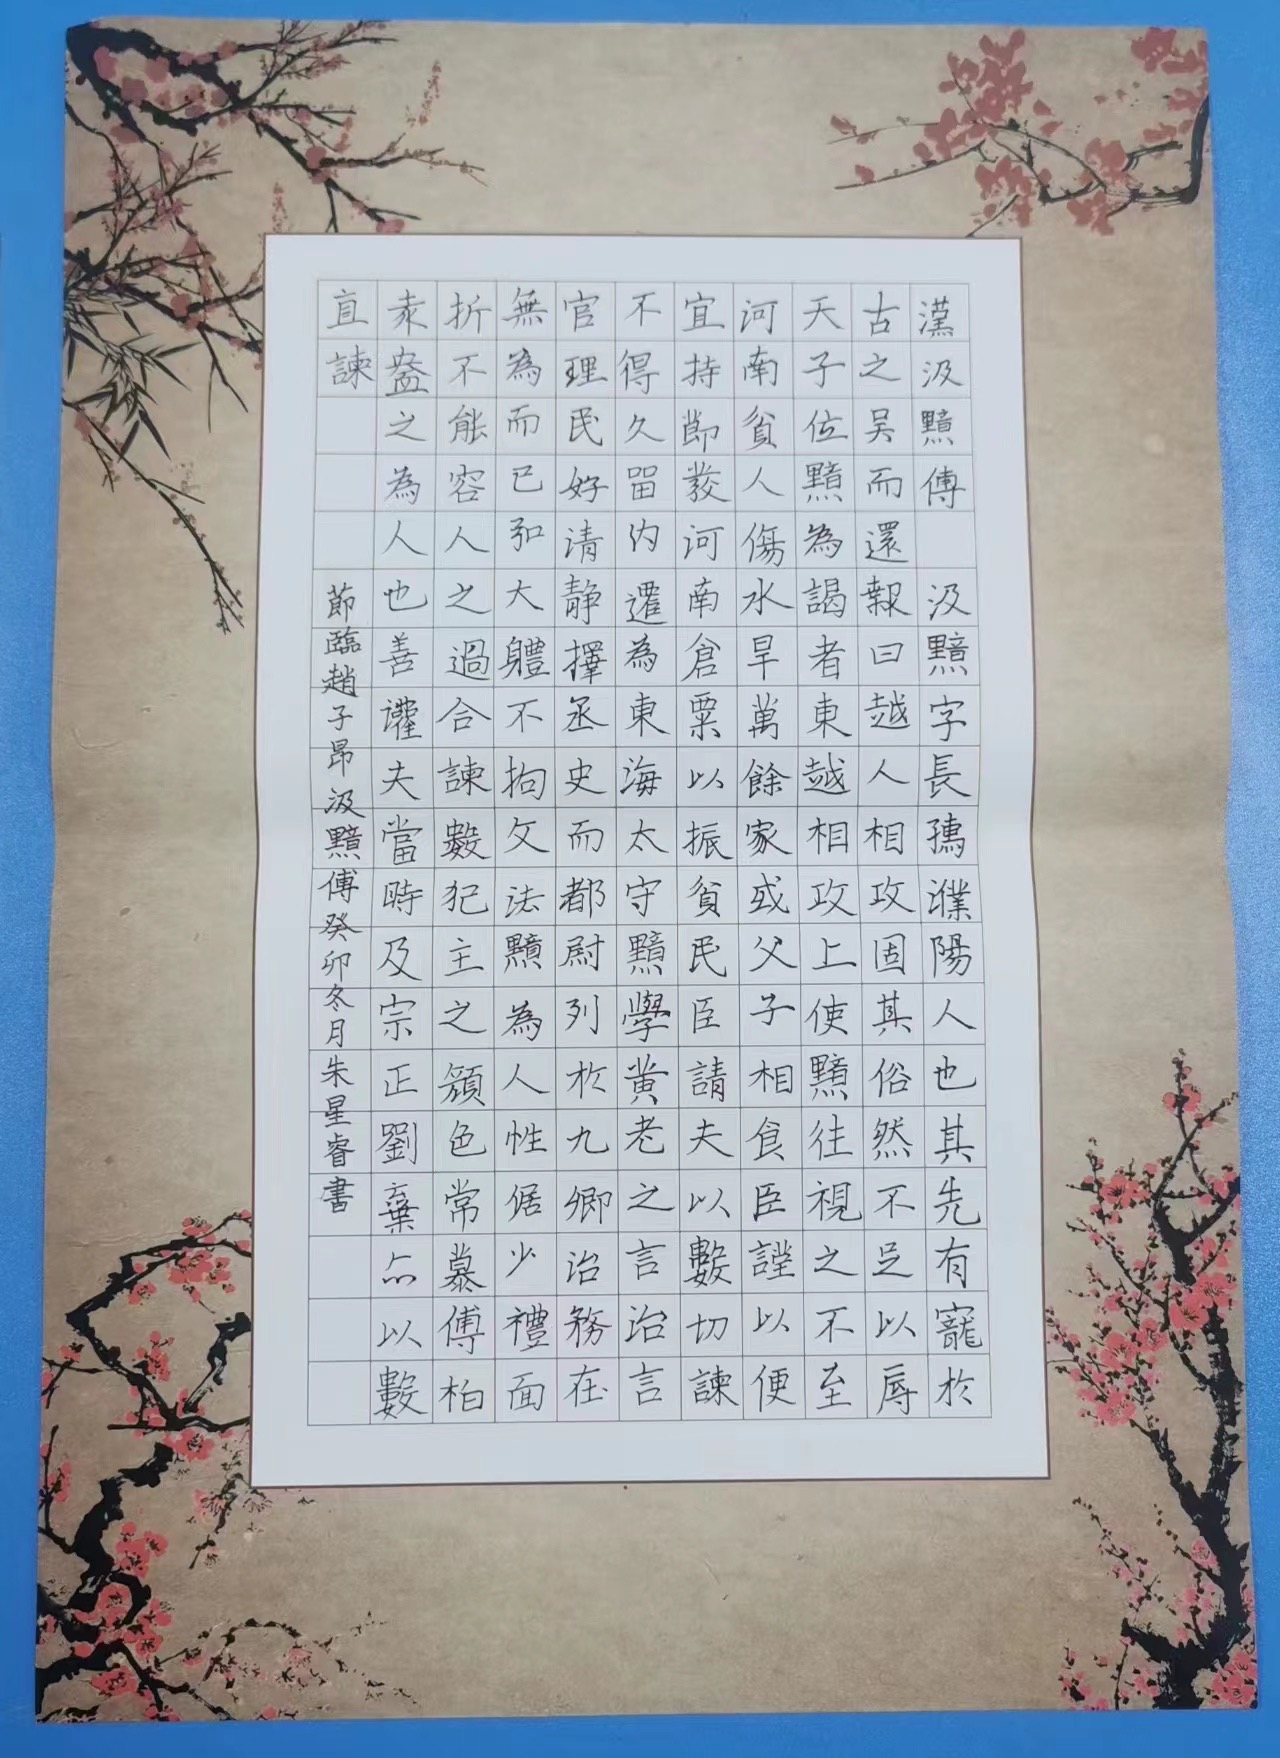 漢汲黯傅 汲黯字長孺濮陽人也其先有寵於
古之吴而還報曰越人相攻固其俗然不足以辱
天子位黯為謁者東越相攻上使黯往視之不至
河南貧人傷水旱萬餘家或父子相食臣謹以便
宜持節發河南倉粟以振貧民臣請夫以數切諫
不得久留内遷為東海太守黯學黄老之言治言
官理民好清静擇丞史而都尉列於九卿治務在
無為而已弘大軆不拘文法黯為人性倨少禮面
折不能容人之過合諫數犯主之顔色常慕傅柏
袁盎之為人也善灌夫當時及宗正劉棄亦以數
直諫
節臨趙子昂汲黯傅癸卯冬月朱星睿書